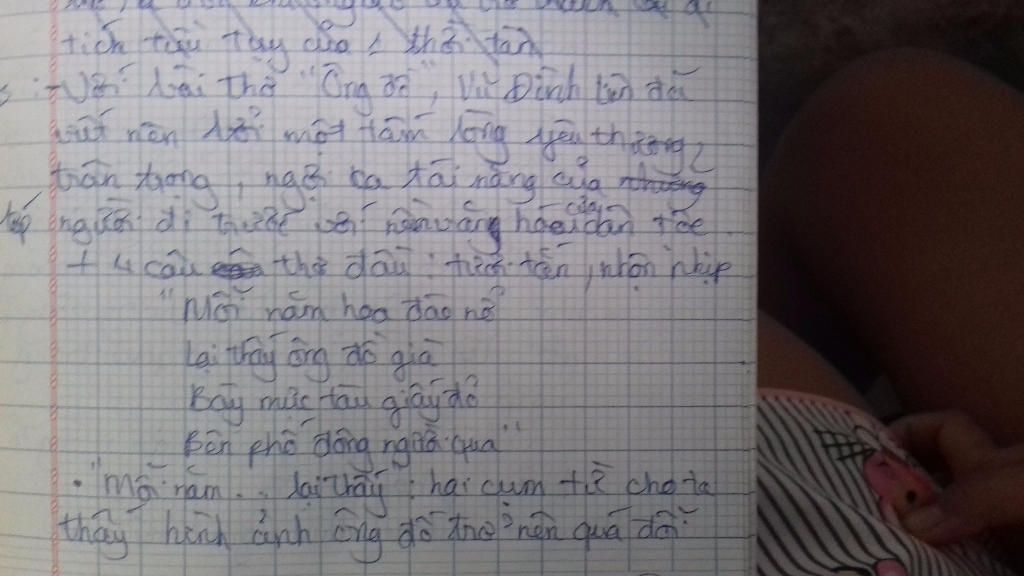 tích tựu tay của 1 thời tàn
Với bài thơ "Ông đồ", Vũ Đình liên đã
viết nên bởi một tấm lòng yêu thương,
trân trọng, ngợi ca tài năng của những
người đi trước với nền văn hóa của dân tộc.
+ 4 câu thơ đầu: tươi tắn, nhộn nhịp
"Mỗi năm hoa đào nở
Lại thấy ông đồ già
Bày mực tàu giấy đỏ
Bên phố đông người qua"
• "Mỗi năm... lại thấy: hai cụm từ cho ta
thấy hình ảnh ông đồ trở nên quá đỗi